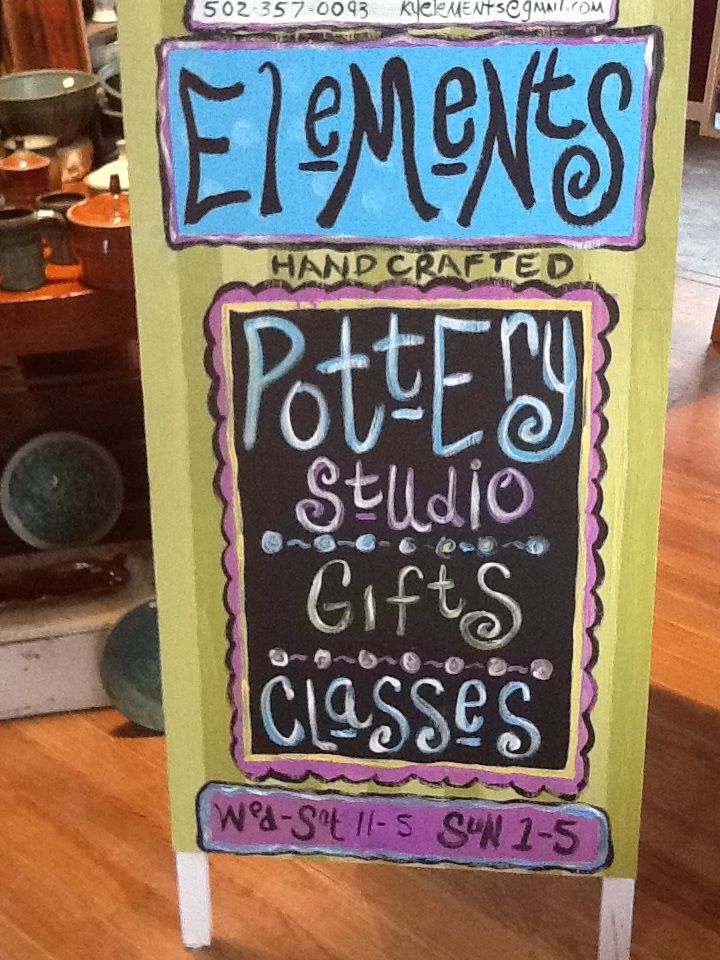 502-357-0093 kyelements@gmail.com
Elements
HANDCRAFTED
Pottery
Studio
Gifts
Classes
Wed-Sat 11-5 Sun 1-5